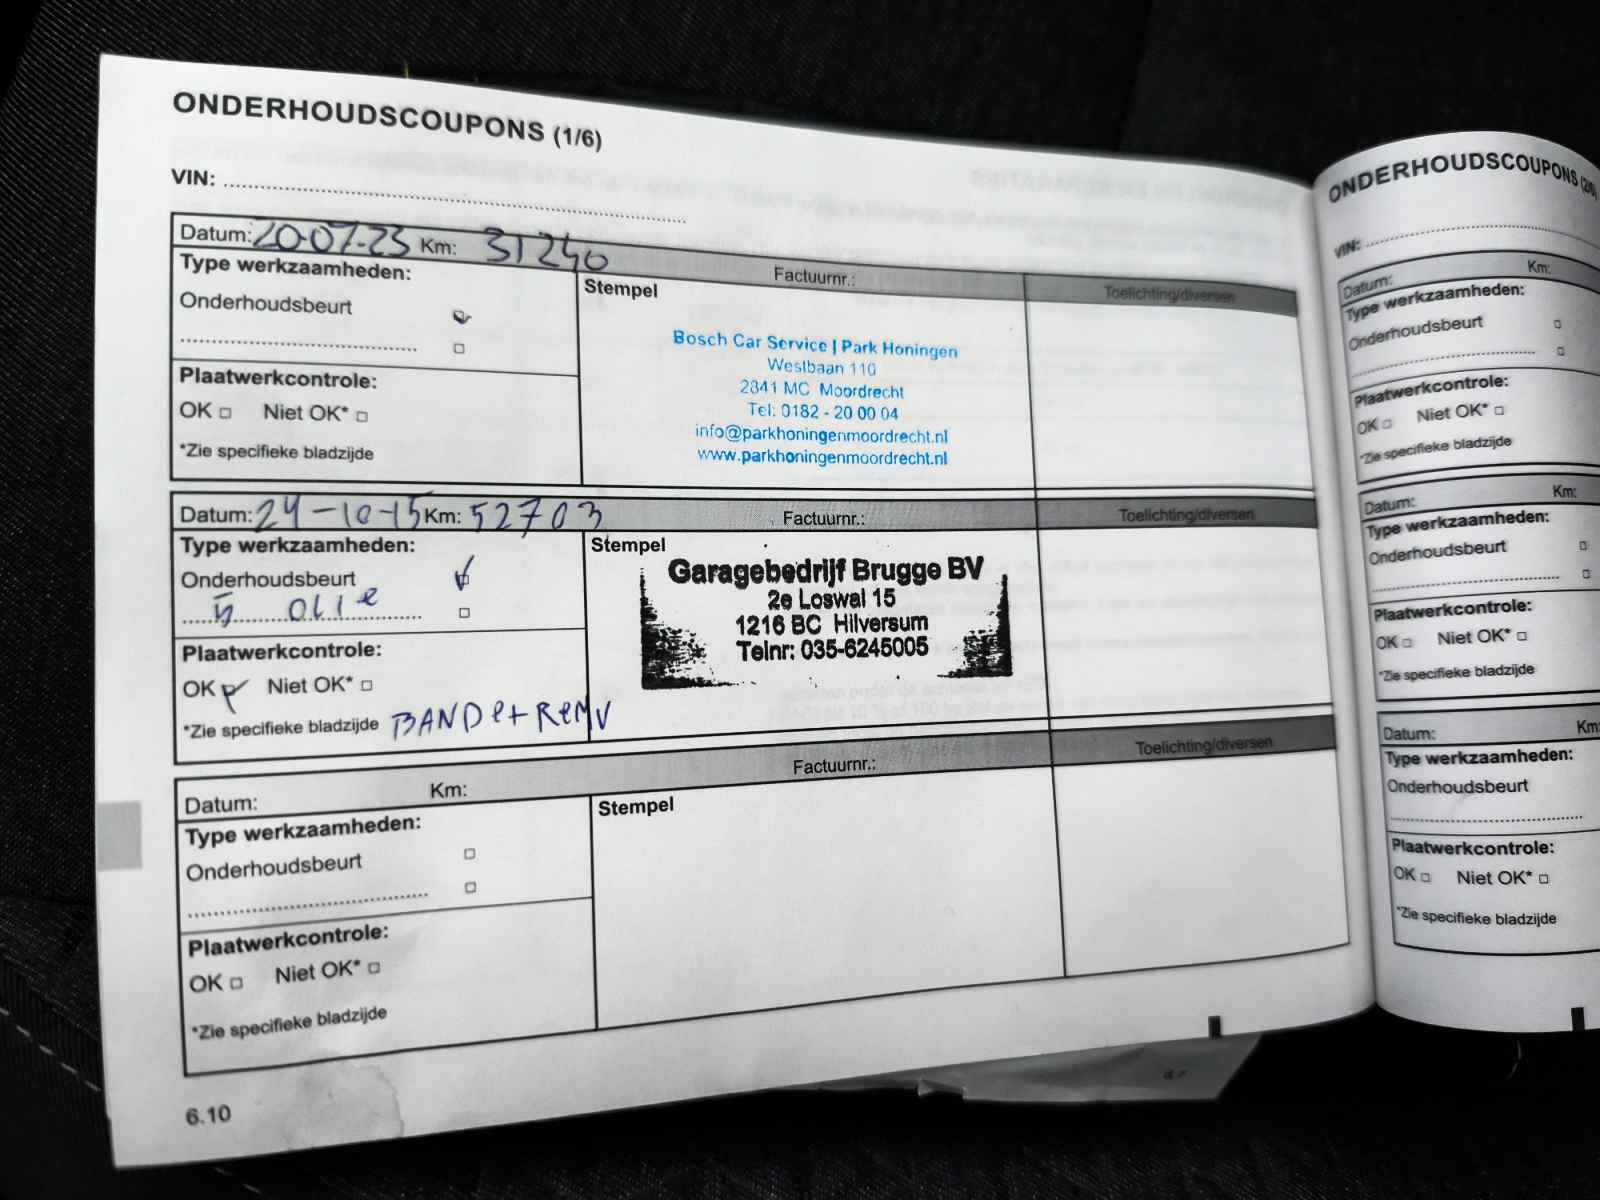 ONDERHOUDSCOUPONS (1/6)
VIN:
Datum: 20-07-23 Km: 31240 Factuurnr.: Toelichting/diversen
Type werkzaamheden:
Onderhoudsbeurt
Plaatwerkcontrole:
OK Niet OK*
*Zie specifieke bladzijde
Stempel
Bosch Car Service | Park Honingen
Westbaan 110
2841 MC Moordrecht
Tel: 0182 - 20 00 04
info@parkhoningenmoordrecht.nl
www.parkhoningenmoordrecht.nl
Datum: 24-10-15 Km: 52703 Factuurnr.: Toelichting/diversen
Type werkzaamheden:
Onderhoudsbeurt
olie
Plaatwerkcontrole:
OK Niet OK*
*Zie specifieke bladzijde
Stempel
Garagebedrijf Brugge BV
2e Loswal 15
1216 BC Hilversum
Telnr: 035-6245005
Datum: Km: Factuurnr.: Toelichting/diversen
Type werkzaamheden:
Onderhoudsbeurt
Plaatwerkcontrole:
OK Niet OK*
*Zie specifieke bladzijde
Stempel
6.10
ONDERHOUDSCOUPONS (2/6)
VIN:
Datum: Km:
Type werkzaamheden:
Onderhoudsbeurt
Plaatwerkcontrole:
OK Niet OK*
*Zie specifieke bladzijde
Datum: Km:
Type werkzaamheden:
Onderhoudsbeurt
Plaatwerkcontrole:
OK Niet OK*
*Zie specifieke bladzijde
Datum: Km:
Type werkzaamheden:
Onderhoudsbeurt
Plaatwerkcontrole:
OK Niet OK*
*Zie specifieke bladzijde